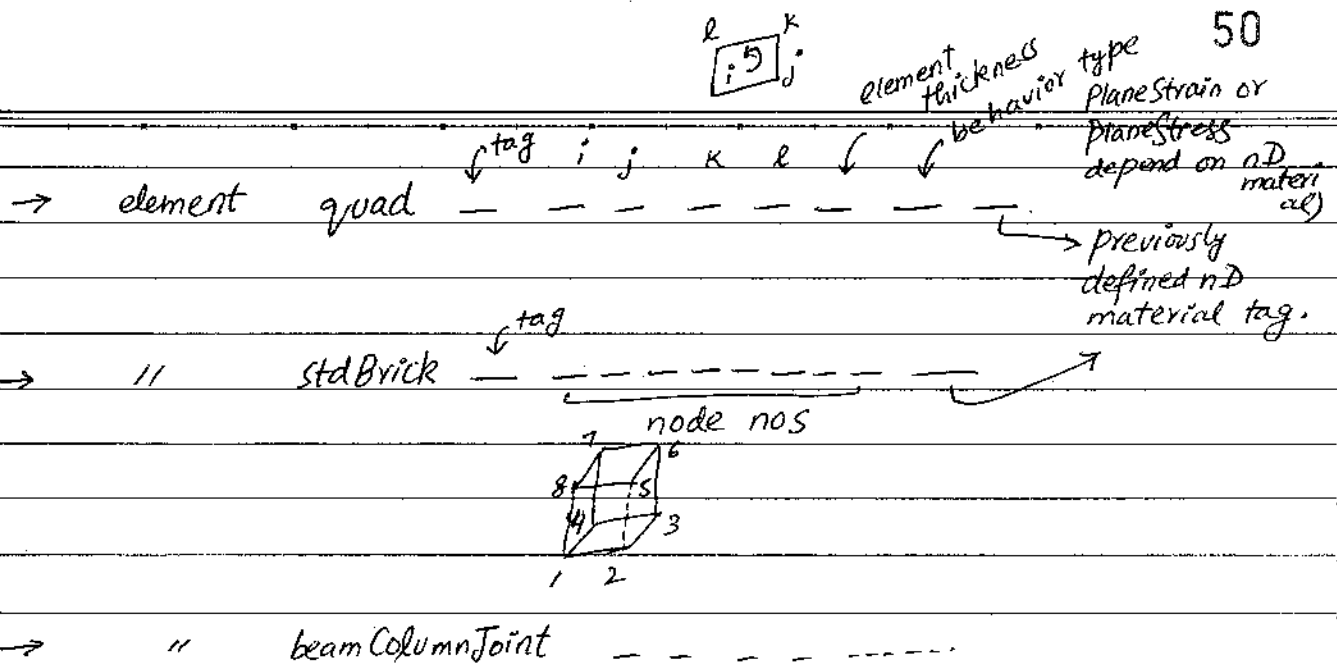 50
l k
i j
element thickness
behavior type
PlaneStrain or
PlaneStress
depend on nD
material)
tag i j k l
→ element quad — — — — — — — —
→ previously
defined nD
material tag.
tag
→ " stdBrick — — — — — — — — — —
node nos
7 6
8 5
4 3
1 2
→ " beamColumnJoint — — — — ------.